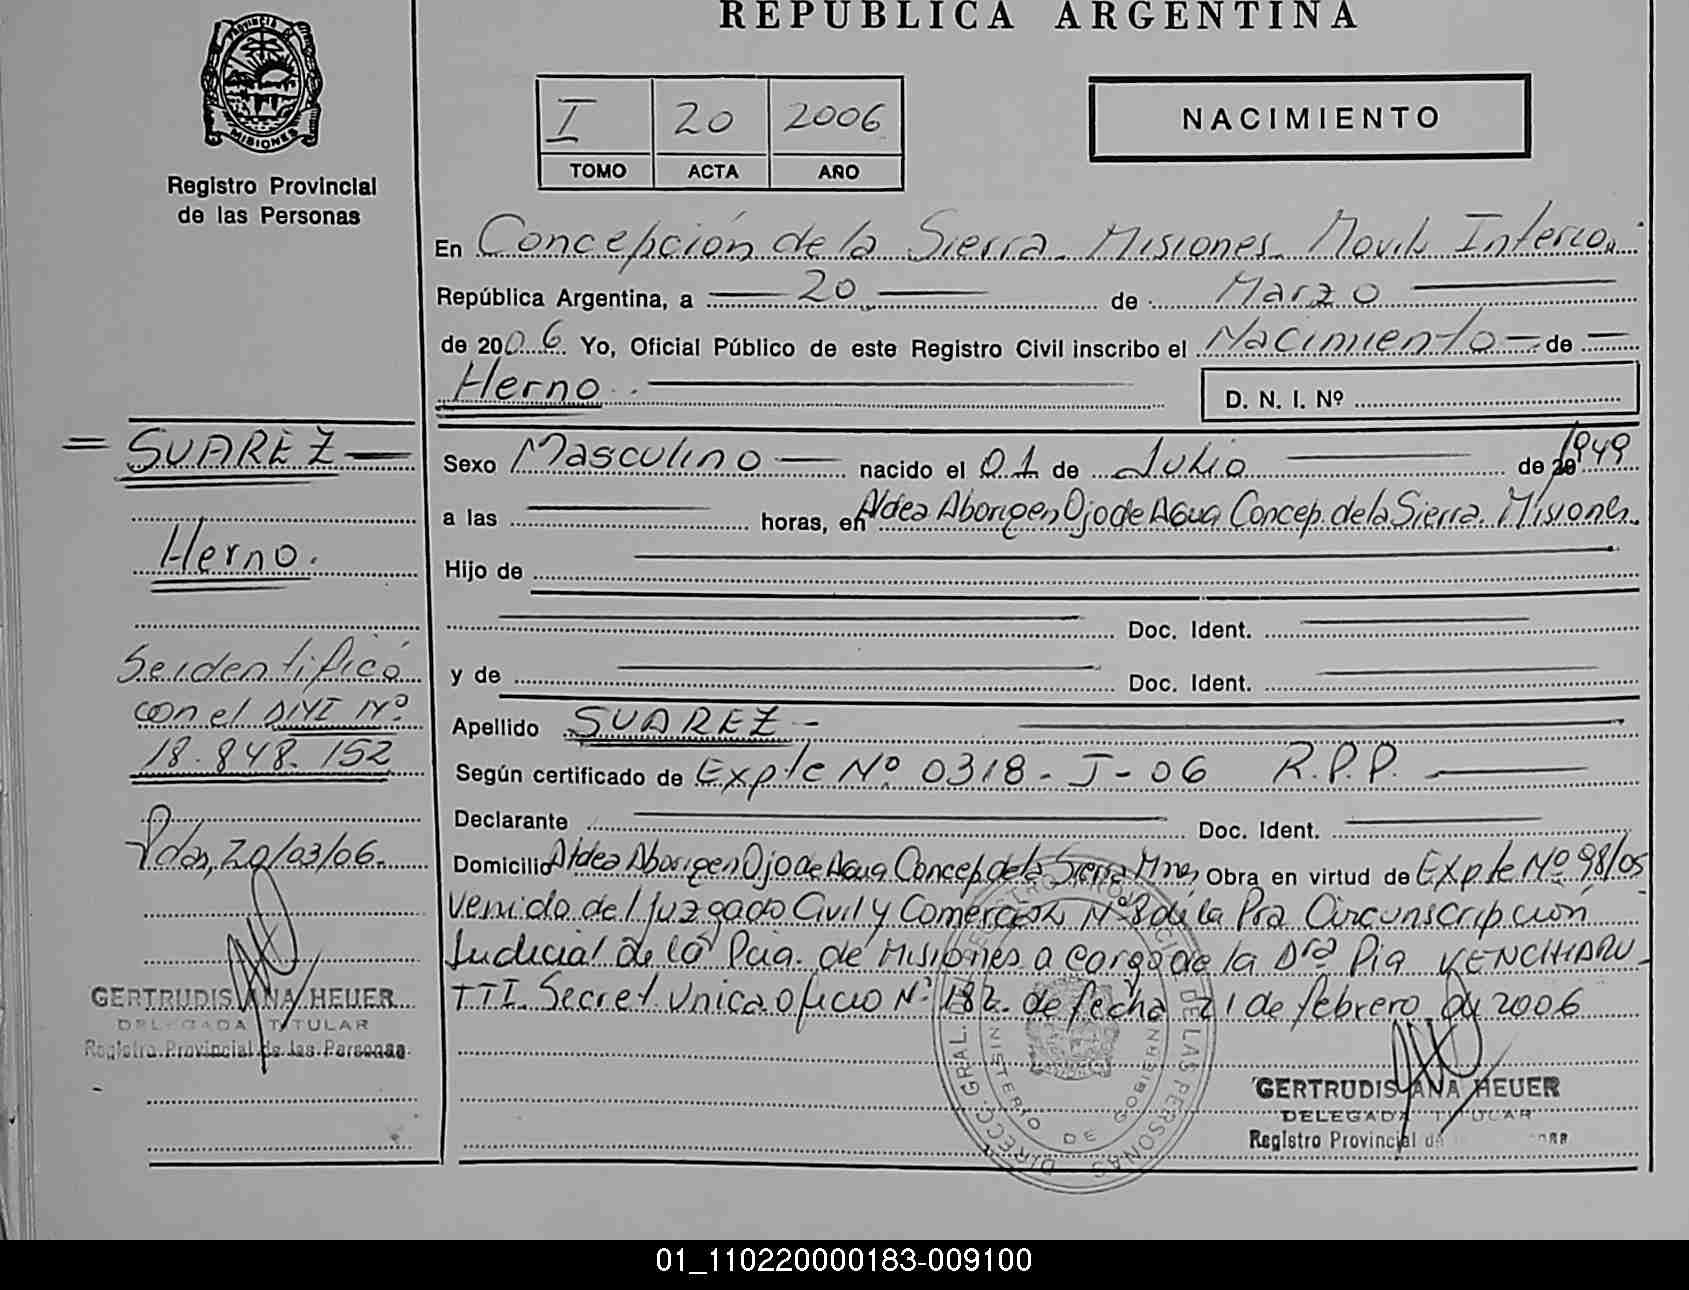 REPUBLICA ARGENTINA
PROVINCIA
MISIONES
Registro Provincial
de las Personas
I 20 2006
TOMO ACTA AÑO
NACIMIENTO
En Concepción de la Sierra - Misiones - Movil Interior
República Argentina, a 20 de Marzo
de 2006 Yo, Oficial Público de este Registro Civil inscribo el Nacimiento de
Herno
D. N. I. Nº
= SUAREZ
Herno.
Se identificó
con el DNI Nº
18.848.152
Pdas, 20/03/06.
GERTRUDIS ANA HEUER
DELEGADA TITULAR
Registro Provincial de las Personas
Sexo Masculino nacido el 01 de Julio de 20 1949
a las horas, en Aldea Aborigen Ojo de Agua Concep. de la Sierra. Misiones.
Hijo de
Doc. Ident.
y de Doc. Ident.
Apellido SUAREZ -
Según certificado de Expte Nº 0318 - J - 06 R.P.P.
Declarante Doc. Ident.
Domicilio Aldea Aborigen Ojo de Agua Concep. de la Sierra Mnes Obra en virtud de Expte Nº 98/05
venido del Juzgado Civil y Comercial Nº 8 de la Pra Circunscripción
Judicial de la Pcia. de Misiones a cargo de la Dra Pia VENCHIARU-
TTI. Secret. Unica oficio Nº 182 de fecha 21 de febrero de 2006
DIRECC. GRAL. DEL REGISTRO PROVINCIAL DE LAS PERSONAS
MINISTERIO DE GOBIERNO
GERTRUDIS ANA HEUER
DELEGADA TITULAR
Registro Provincial de
01_110220000183-009100